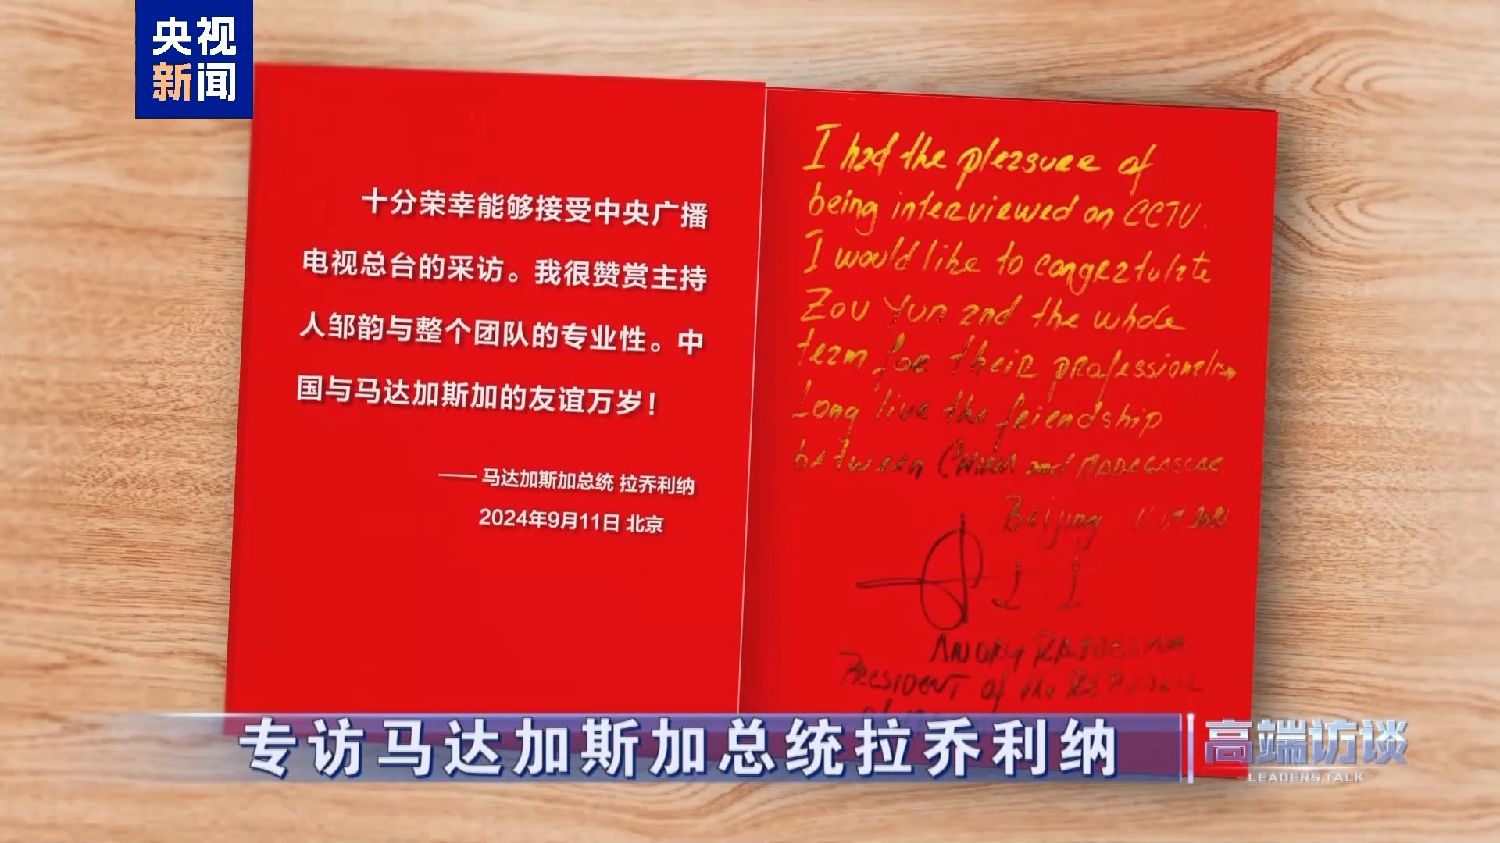 央视
新闻
十分荣幸能够接受中央广播
电视总台的采访。我很赞赏主持
人邹韵与整个团队的专业性。中
国与马达加斯加的友谊万岁！
—— 马达加斯加总统 拉乔利纳
2024年9月11日 北京
I had the pleasure of
being interviewed on CCTV.
I would like to congratulate
Zou Yun and the whole
team for their professionalism
Long live the friendship
between China and MADAGASCAR
Beijing
ANDRY RAJOELINA
PRESIDENT of the REPUBLIC
专访马达加斯加总统拉乔利纳
高端访谈
LEADERS TALK